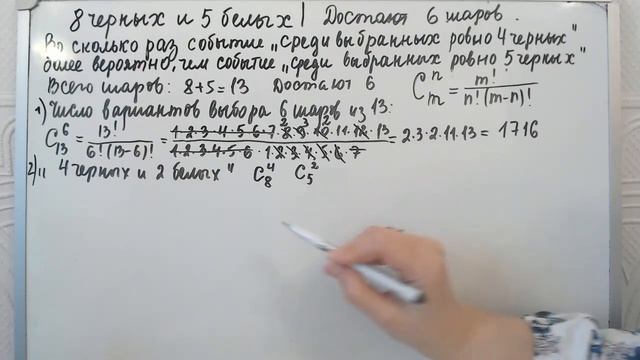 8 черных и 5 белых | Достают 6 шаров.
Во сколько раз событие „среди выбранных ровно 4 черных"
более вероятно, чем событие „среди выбранных ровно 5 черных"
Всего шаров: 8+5=13 Достают 6 C_m^n = m!/n!(m-n)!
1) Число вариантов выбора 6 шаров из 13:
C_13^6 = 13!/6!(13-6)! = 1·2·3·4·5·6·7·8·9·10·11·12·13/1·2·3·4·5·6·1·2·3·4·5·6·7 = 2·3·2·11·13 = 1716
2) „4 черных и 2 белых" C_8^4 C_5^2